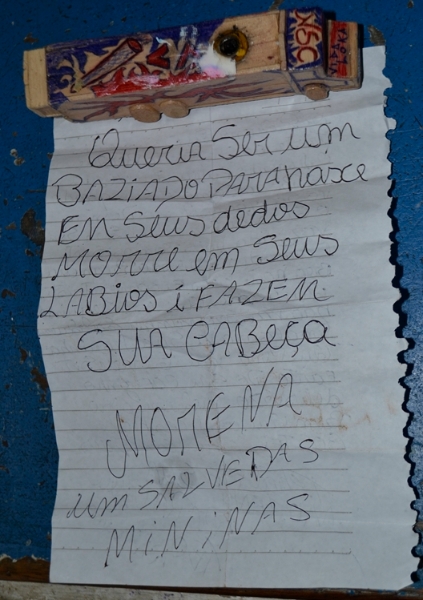 XSC
VIDA
LOKA
Queria Ser um
BAZiADO PARA nasce
EM Seus dedos
MORRe em Seus
LABios i FAZEM
SUA CABeça
MORENA
um SALVE DAS
MiNiNAS